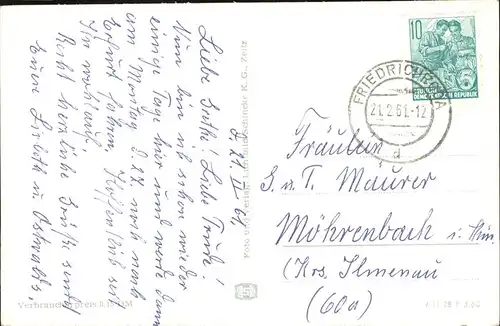 d. 21. II. 61.
Liebe Ruth! Liebe Trude!
Nun bin ich schon wieder
einige Tage hier und werde dann
am Montag d. 27. nach
Erfurt fahren. Hoffentlich seid
Ihr wohlauf.
Recht herzliche Grüße sendet
Euere Lisbeth u. Ostwalds.
Verbraucherpreis
K. G., Zeitz
10
DEUTSCHE
DEMOKRATISCHE REPUBLIK
FRIEDRICHRODA
21.2.61.-12
d
Fräulein
S. u. T. Maurer
Möhrenbach i. Thür.
(Krs. Ilmenau)
(60a)